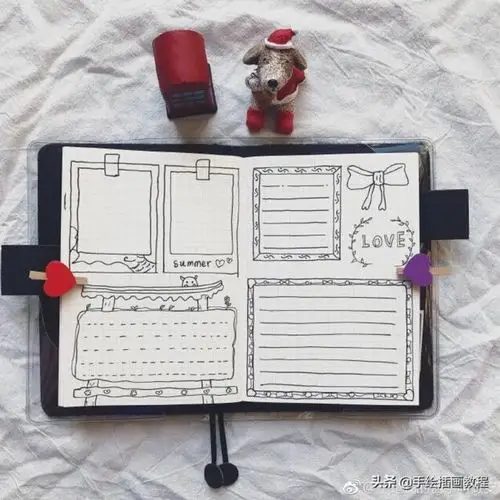 summer
LOVE
头条@手绘插画教程